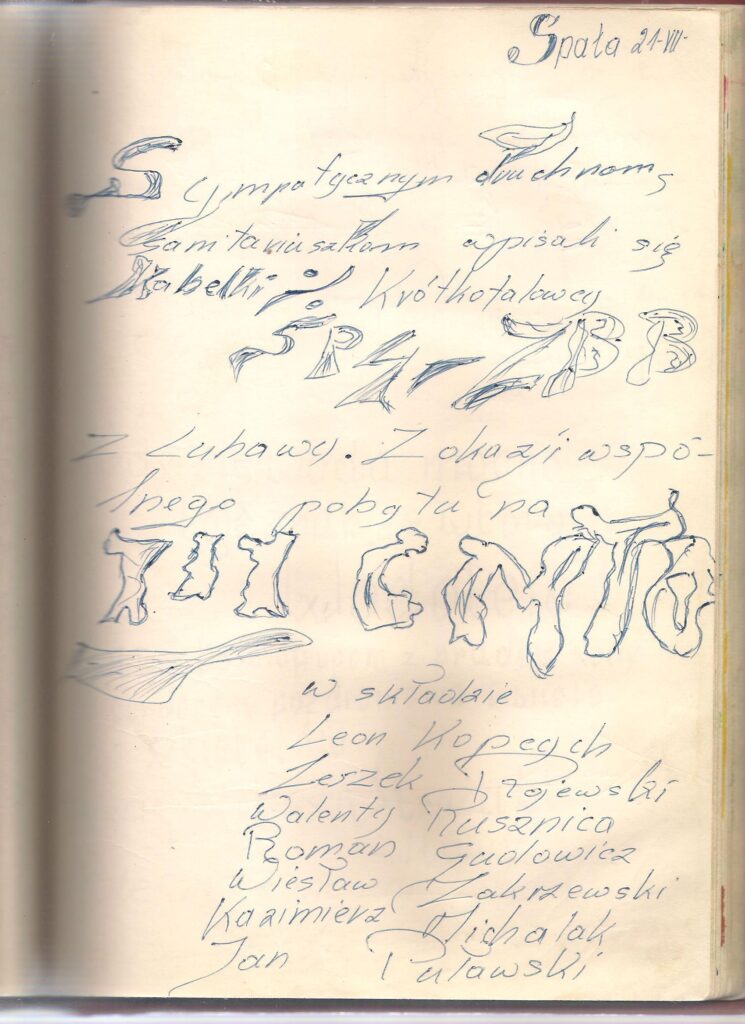 Spała 21-VII-
Sympatycznym Druchnom
Sanitariuszkom wpisali się
Kabelki i Krótkofalowcy
SP4-ZBB
z Lubawy. Z okazji wspó-
lnego pobytu na
III CMTO
w składzie
Leon
Leszek
Walenty Rusznica
Roman Gudowicz
Wiesław Zakrzewski
Kazimierz Michalak
Jan Puławski